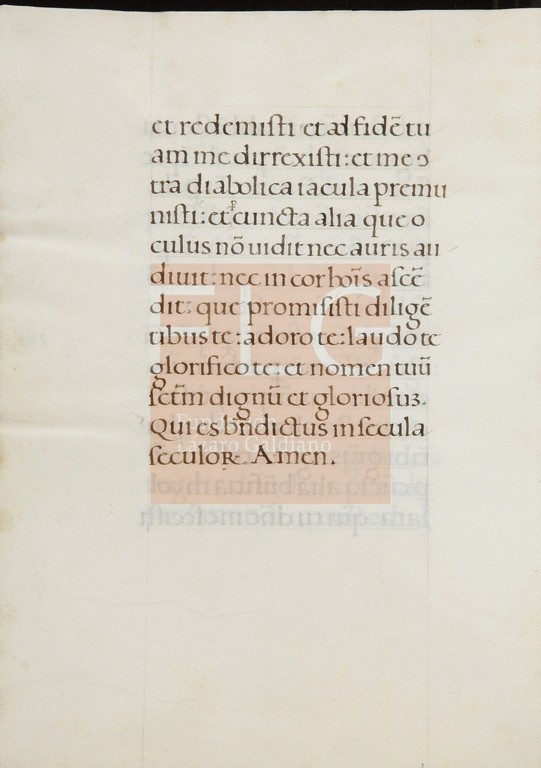 et redemisti et ad fidē tu
am me dirrexisti: et me ɔ
tra diabolica iacula premu
nisti: et ꝓ cuncta alia que o
culus nō uidit nec auris au
diuit: nec in cor hoīs ascē
dit: que promisisti diligē
tibus te: adoro te: laudo te
glorifico te: et nomen tuū
sctm̄ dignū et gloriosuꝫ.
Qui es bn̄dictus in secula
seculoꝝ. Amen.
FLG
Fundación
Lázaro Galdiano